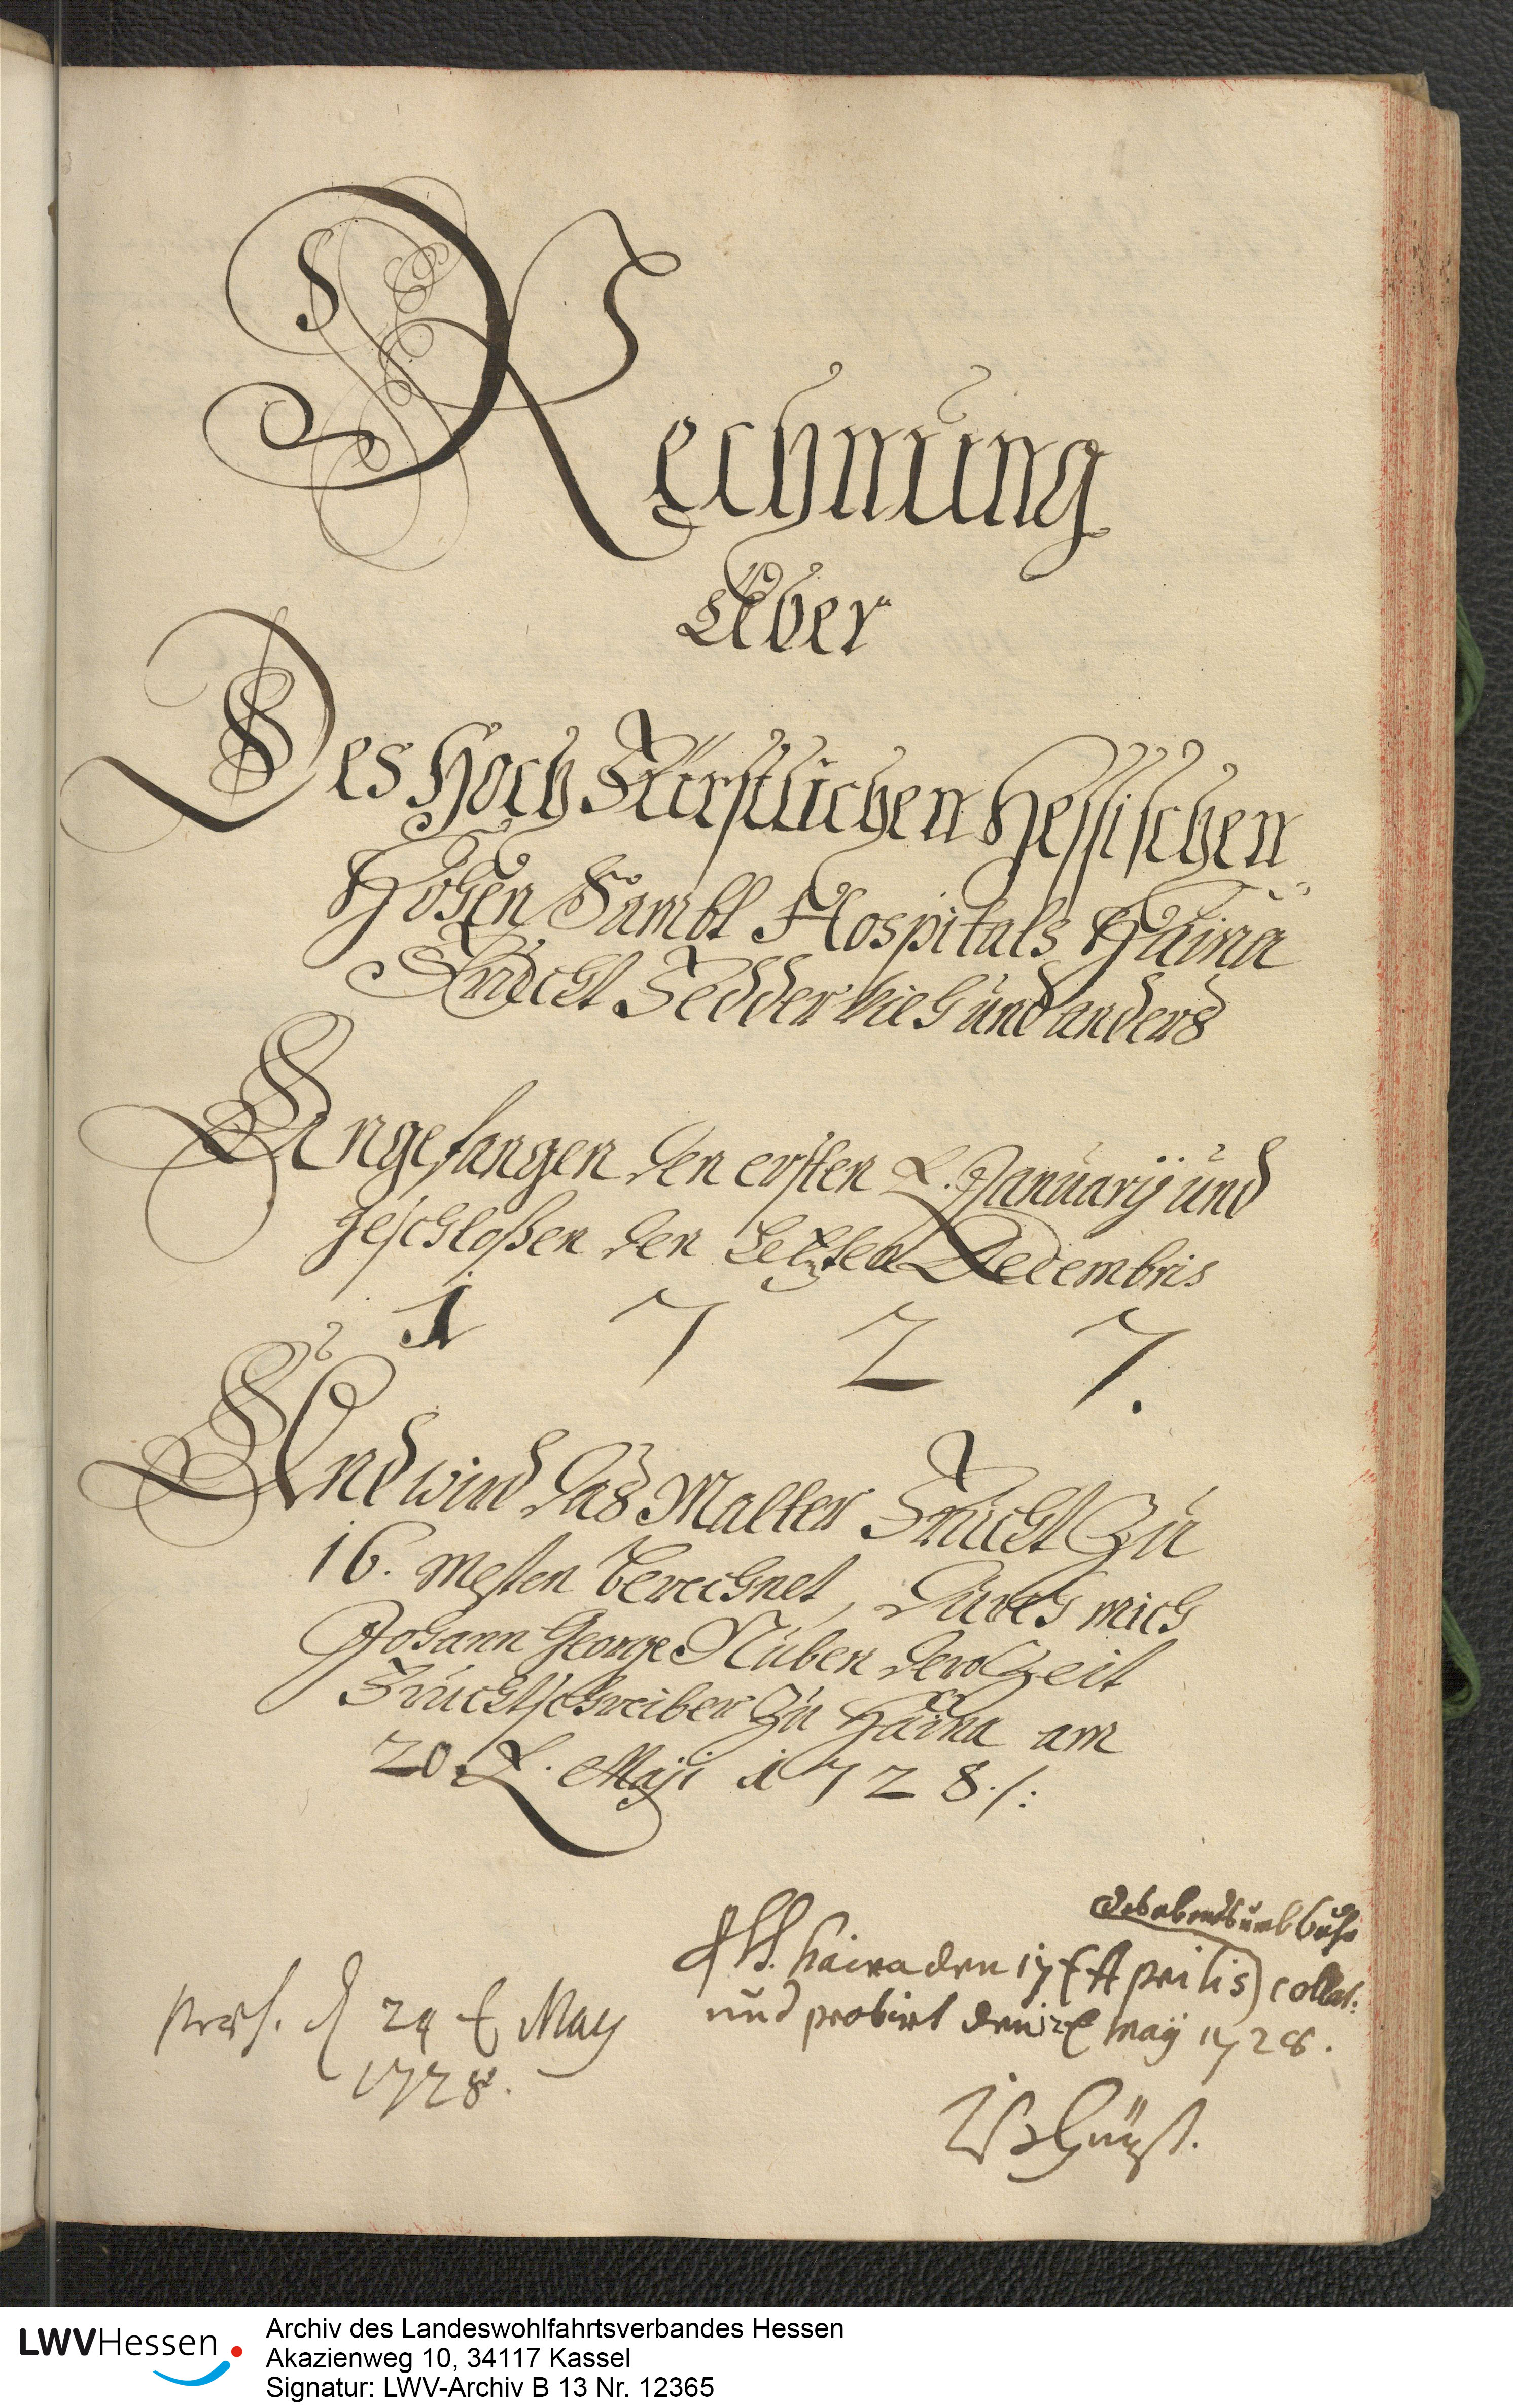 Rechnung
Über
Des Hoch Fürstlichen Hessischen
Hohen Sambt Hospitals Haina
Frucht Fedder Vieh und anders
Angefangen den ersten January und
geschloßen den Letzten Decembris
1727.
Und wird das Malter Frucht Zu
16. Mesten berechnet, durch mich
Johann George derozeit
Fruchtschreiber Zu Haina am
20. Maji 1728./:
des abends umb 6 uhr
Haina den 17 Aprilis) collat:
und probirt den 12 May 1728.
præs. d 24 May
1728.
LWVHessen
Archiv des Landeswohlfahrtsverbandes Hessen
Akazienweg 10, 34117 Kassel
Signatur: LWV-Archiv B 13 Nr. 12365